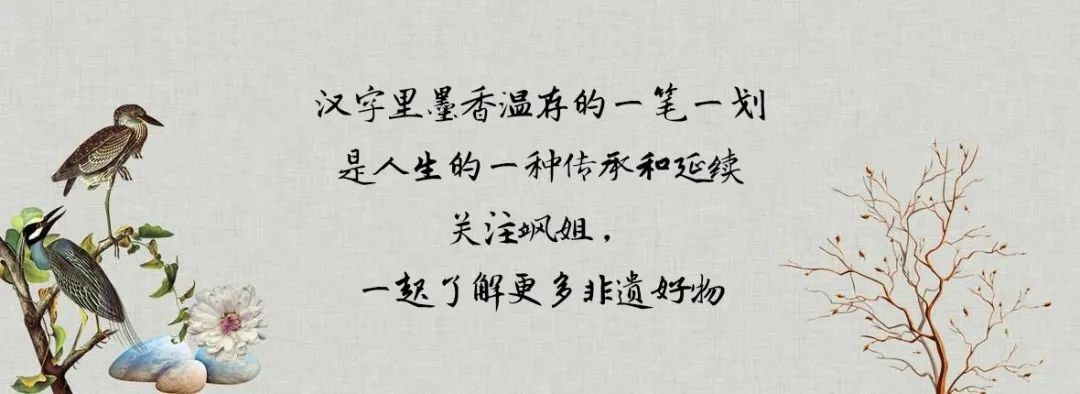 汉字里墨香温存的一笔一划
是人生的一种传承和延续
关注飒姐，
一起了解更多非遗好物